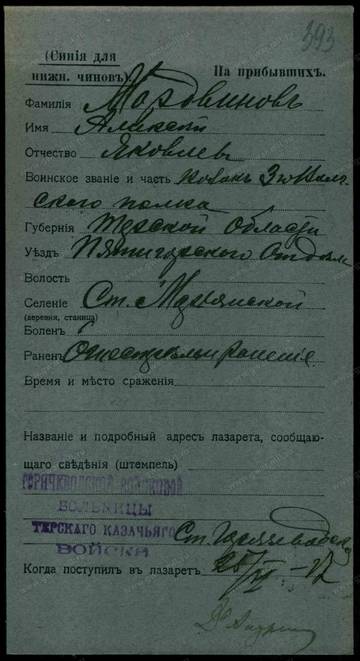 393
(Синія для
нижн. чиновъ).
На прибывшихъ.
Фамилія Мордвиновъ
Имя Алексѣй
Отчество Яковлев
Воинское званіе и часть казакъ 3го
скаго полка
Губернія Терской Области
Уѣздъ Пятигорскаго Отдѣла
Волость
Селеніе Ст.
(деревня, станица)
Боленъ
Раненъ Огнестрѣльн раненіе
Время и мѣсто сраженія
Названіе и подробный адресъ лазарета, сообщаю-
щаго свѣдѣнія (штемпель)
БОЛЬНИЦЫ
ТЕРСКАГО КАЗАЧЬЯГО
ВОЙСКА
Ст.
Когда поступилъ въ лазаретъ